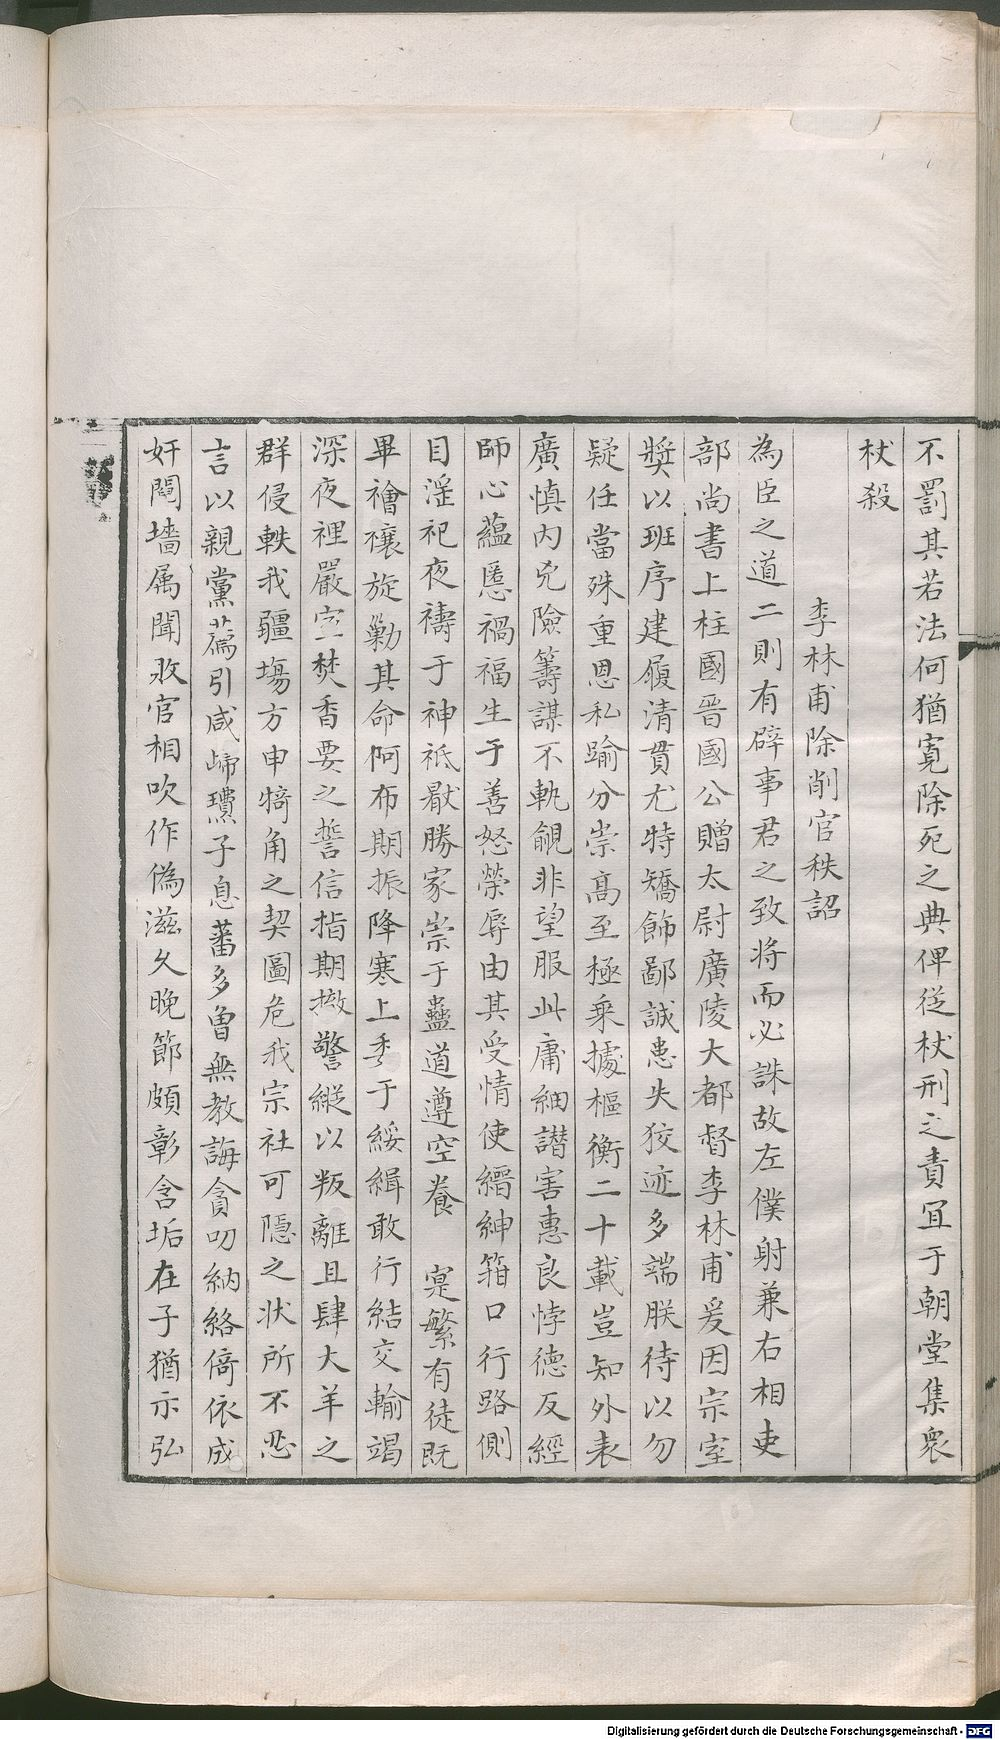 不罰其若法何猶寛除死之典俾從杖刑之責宜于朝堂集衆
杖殺
李林甫除削官秩詔
為臣之道二則有辟事君之致将而必誅故左僕射兼右相吏
部尚書上柱國晋國公贈太尉廣陵大都督李林甫爰因宗室
奬以班序建履清貫尤特矯飾鄙誠患失狡迹多端朕待以勿
疑任當殊重恩私踰分崇髙至極乗據樞衡二十載豈知外表
廣慎内兇險籌謀不軌覦非望服此庸細譛害惠良悖德反經
師心蘊慝禍福生于善怒榮辱由其受情使縉紳箝口行路側
目滛祀夜禱于神祗厭勝家崇于蠱道遵空養 寔繁有徒既
畢禬禳旋勦其命阿布期振降寒上秀于綏緝敢行結交輸竭
深夜裡嚴空焚香要之誓信指期撤警縱以叛離且肆大羊之
群侵軼我疆塲方申犄角之契圖危我宗社可隠之状所不忍
言以親黨薦引咸歸瓚子息蕃多曽無教誨貪叨納絡倚依成
奸鬩墻属聞敗官相吹作偽滋久晚節頗彰含垢在予猶示弘
Digitalisierung gefördert durch die Deutsche Forschungsgemeinschaft - DFG